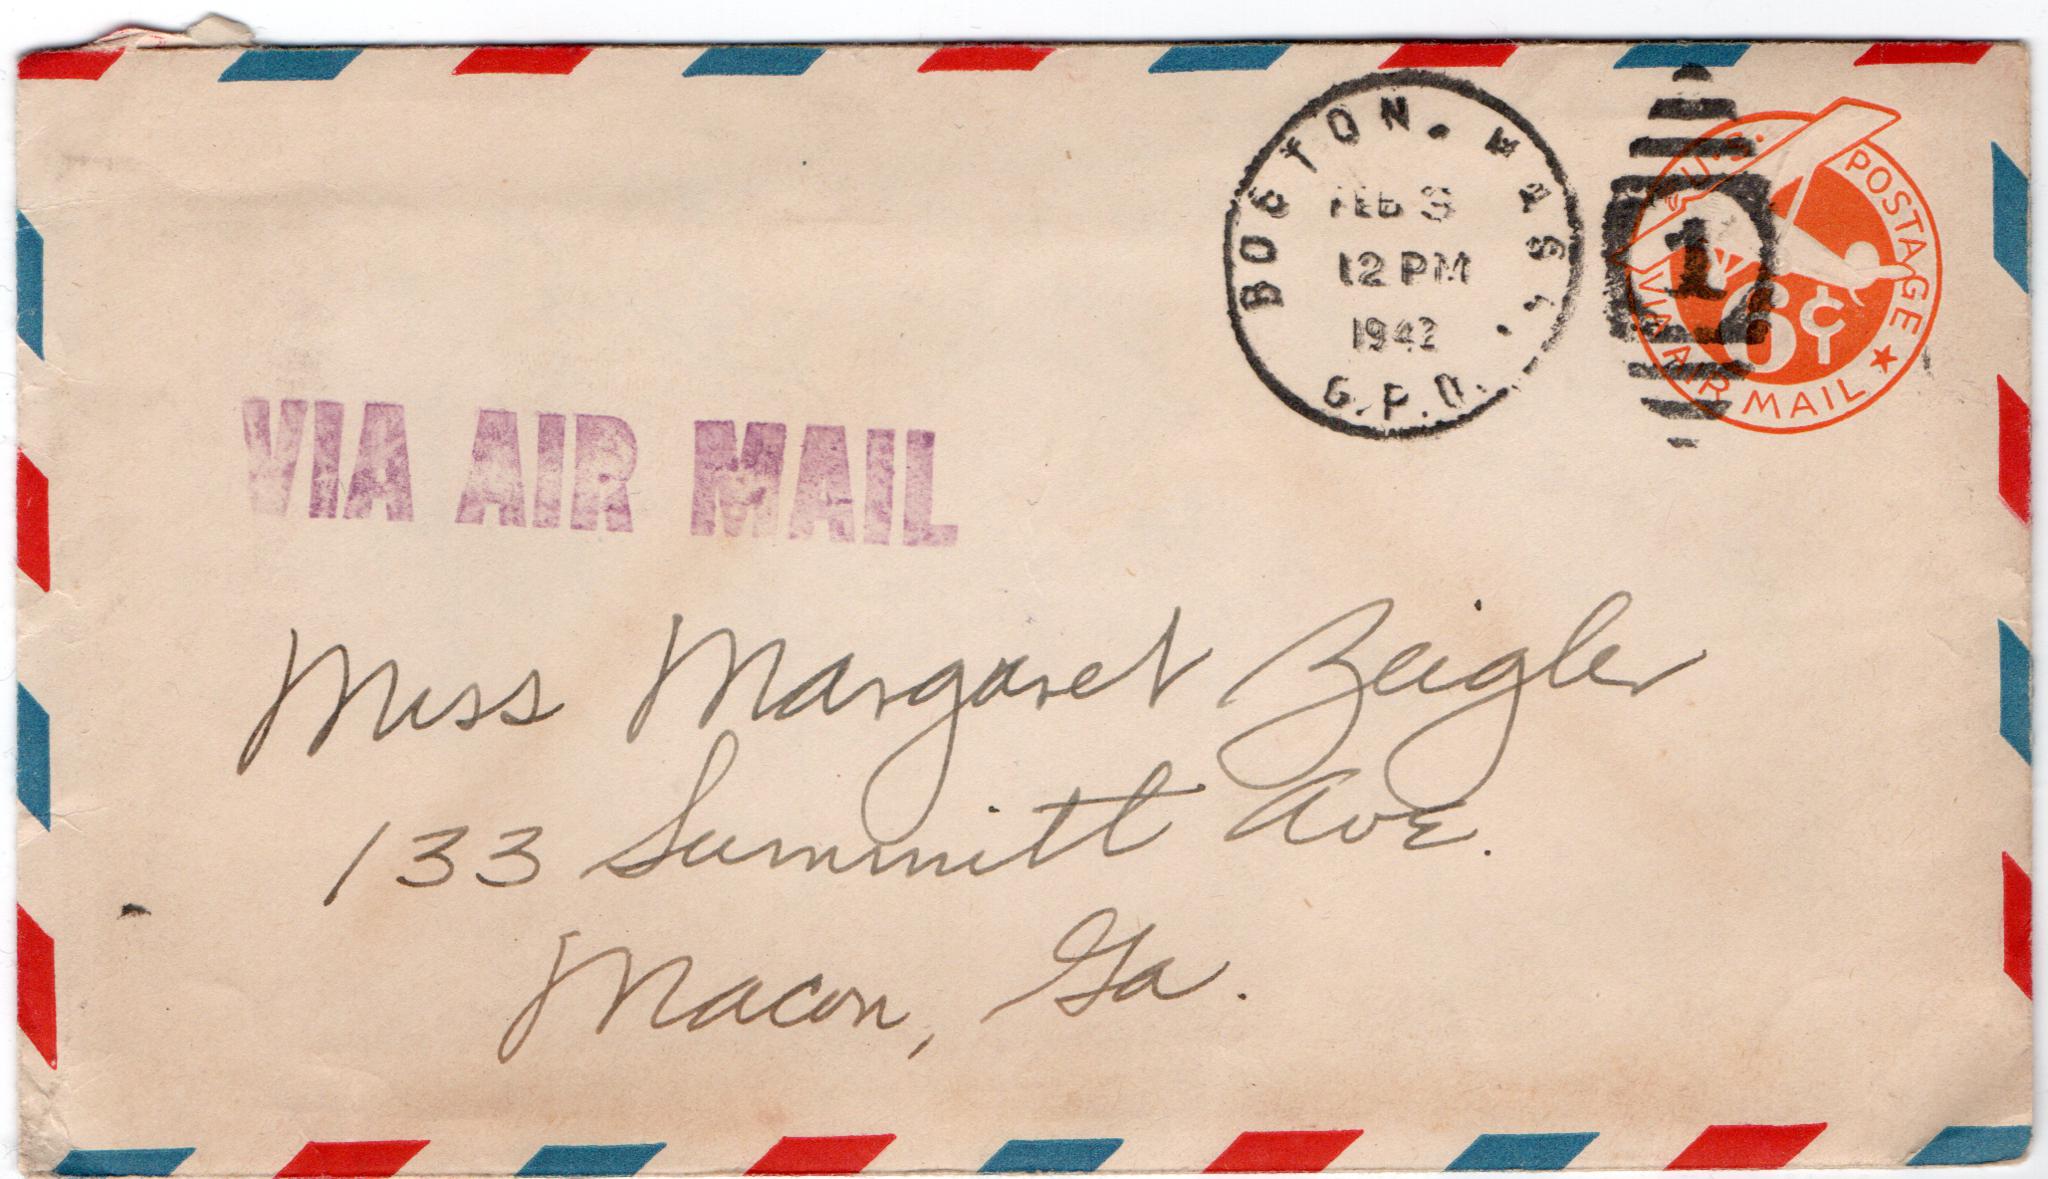 BOSTON, MASS.
FEB 3
12 PM
1942
G.P.O.
1
U.S. POSTAGE
6¢
VIA AIR MAIL
VIA AIR MAIL
Miss Margaret Zeigler
133 Summitt Ave.
Macon, Ga.